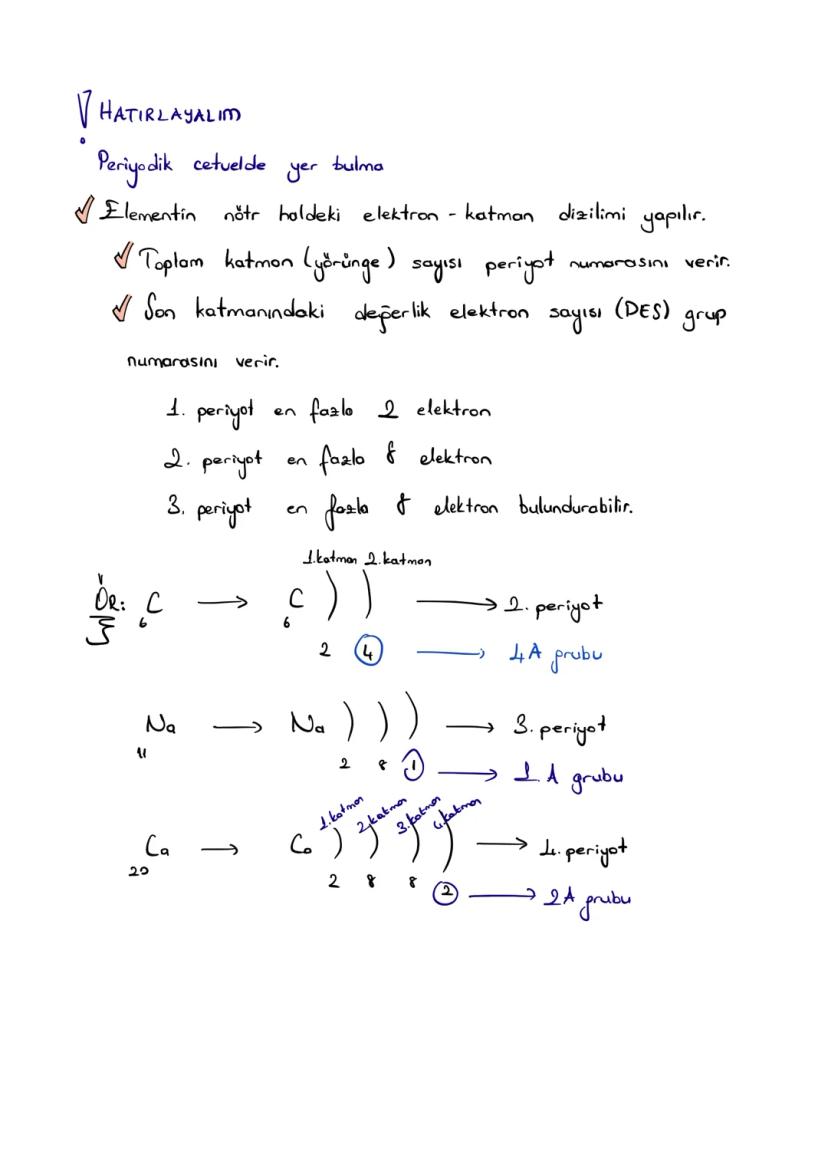 ! HATIRLAYALIM
Periyodik cetvelde yer bulma
Elementin nötr haldeki elektron - katman dizilimi yapılır.
Toplam katman (yörünge) sayısı periyot numarasını verir.
Son katmanındaki değerlik elektron sayısı (DES) grup
numarasını verir.
1. periyot en fazla 2 elektron
2. periyot en fazla 8 elektron
3. periyot en fazla 8 elektron bulundurabilir.
1.katman 2.katman
ÖR: ₆C → ₆C ) ) → 2. periyot
2 4 → 4A grubu
₁₁Na → Na ) ) ) → 3. periyot
2 8 1 → 1A grubu
1.katman 2.katman 3.katman 4.katman
₂₀Ca → Ca ) ) ) ) → 4. periyot
2 8 8 2 → 2A grubu